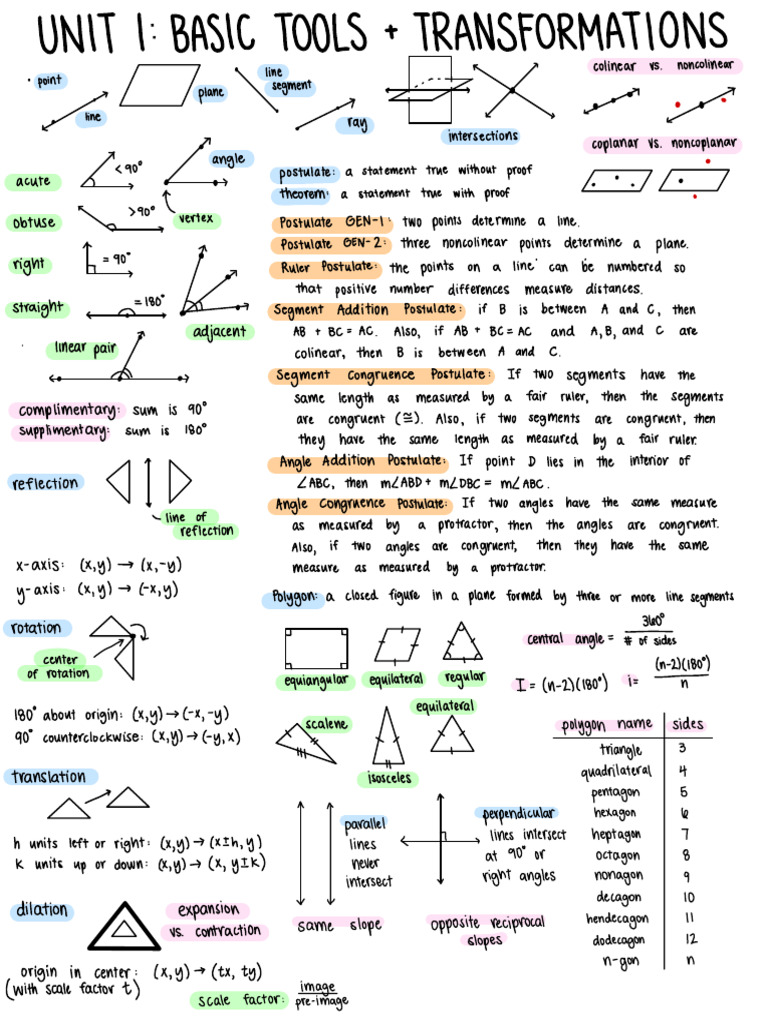 UNIT 1: BASIC TOOLS + TRANSFORMATIONS
point
line
plane
line
segment
ray
intersections
colinear vs. noncolinear
coplanar vs. noncoplanar
acute
< 90°
angle
vertex
obtuse
> 90°
right
= 90°
straight
= 180°
adjacent
linear pair
complimentary: sum is 90°
supplimentary: sum is 180°
reflection
line of
reflection
x-axis: (x,y) → (x,-y)
y-axis: (x,y) → (-x,y)
rotation
center
of rotation
180° about origin: (x,y) → (-x,-y)
90° counterclockwise: (x,y) → (-y,x)
translation
h units left or right: (x,y) → (x±h, y)
k units up or down: (x,y) → (x, y±k)
dilation
expansion
vs. contraction
origin in center: (x,y) → (tx, ty)
(with scale factor t)
scale factor: image
pre-image
postulate: a statement true without proof
theorem: a statement true with proof
Postulate GEN-1: two points determine a line.
Postulate GEN-2: three noncolinear points determine a plane.
Ruler Postulate: the points on a line can be numbered so
that positive number differences measure distances.
Segment Addition Postulate: if B is between A and C, then
AB + BC = AC. Also, if AB + BC = AC and A,B, and C are
colinear, then B is between A and C.
Segment Congruence Postulate: If two segments have the
same length as measured by a fair ruler, then the segments
are congruent (≅). Also, if two segments are congruent, then
they have the same length as measured by a fair ruler.
Angle Addition Postulate: If point D lies in the interior of
∠ABC, then m∠ABD + m∠DBC = m∠ABC.
Angle Congruence Postulate: If two angles have the same measure
as measured by a protractor, then the angles are congruent.
Also, if two angles are congruent, then they have the same
measure as measured by a protractor.
Polygon: a closed figure in a plane formed by three or more line segments
equiangular
equilateral
regular
central angle = 360°
# of sides
I = (n-2)(180°)
i = (n-2)(180°)
n
scalene
isosceles
equilateral
parallel
lines
never
intersect
same slope
perpendicular
lines intersect
at 90° or
right angles
opposite reciprocal
slopes
polygon name sides
triangle 3
quadrilateral 4
pentagon 5
hexagon 6
heptagon 7
octagon 8
nonagon 9
decagon 10
hendecagon 11
dodecagon 12
n-gon n